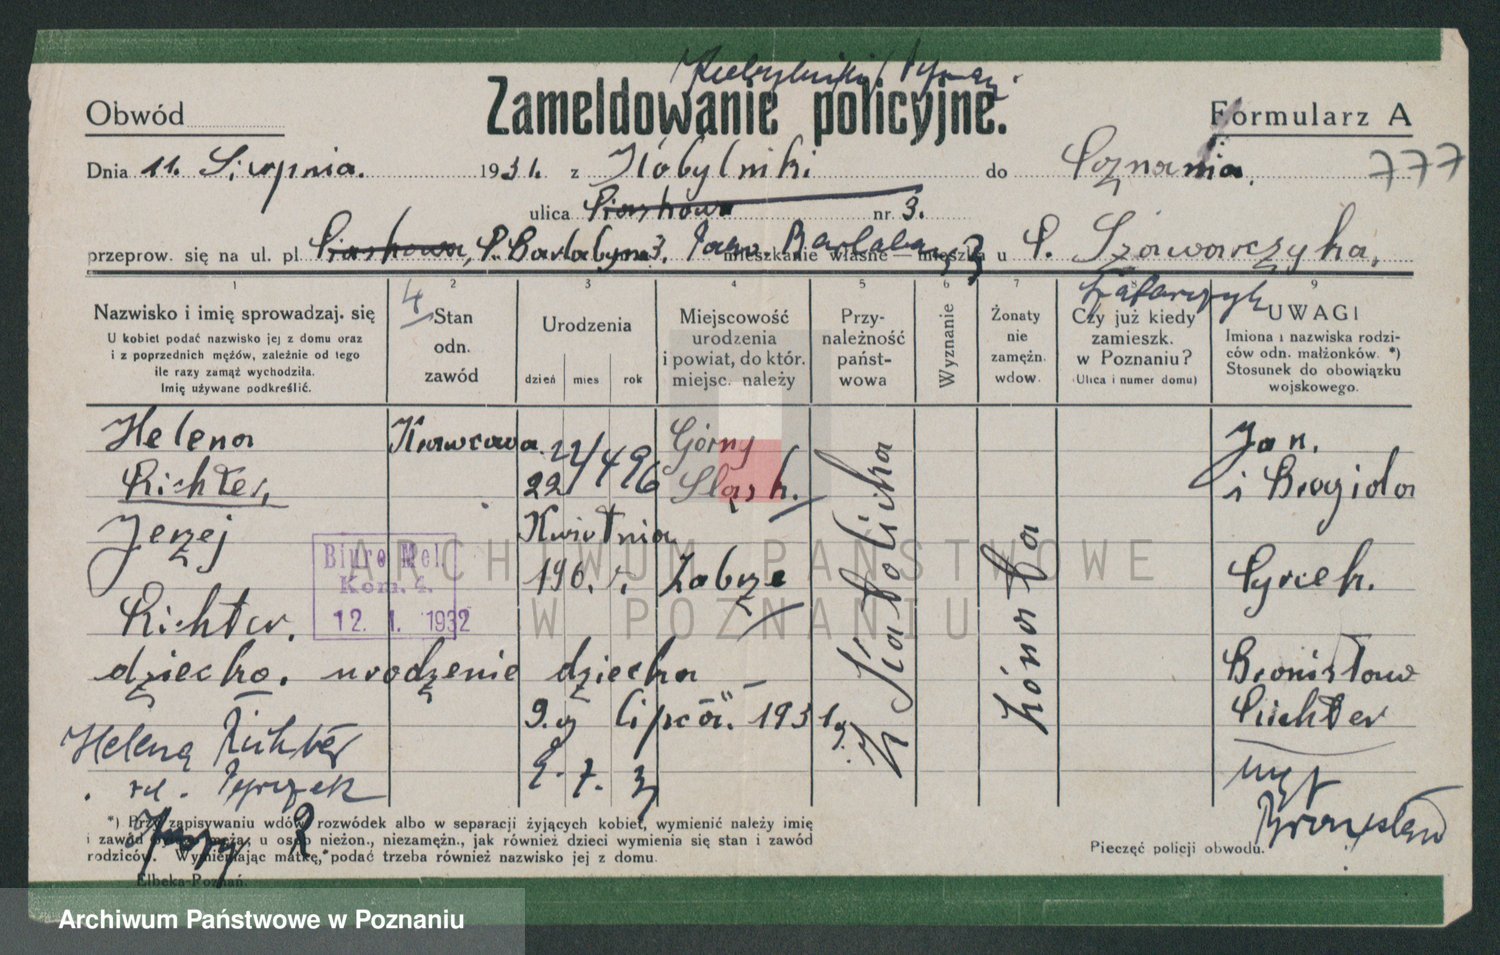 Zameldowanie policyjne.
Obwód
Formularz A
Dnia 11. Sierpnia. 1931. z Kobylniki do Poznania. 777
ulica Piaskowa nr. 3.
przeprow. się na ul. pl. Piaskowa, P. Bartabyna 3. mieszkanie własne — mieszka u P. Szawarczyka,
1 2 3 4 5 6 7 9
Nazwisko i imię sprowadzaj. się
U kobiet podać nazwisko jej z domu oraz
i z poprzednich mężów, zależnie od tego
ile razy zamąż wychodziła.
Imię używane podkreślić.
4
Stan
odn.
zawód
Urodzenia
dzień mies rok
Miejscowość
urodzenia
i powiat, do któr.
miejsc. należy
Przy-
należność
państ-
wowa
Wyznanie
Żonaty
nie
zamężn.
wdow.
Czy już kiedy
zamieszk.
w Poznaniu?
(Ulica i numer domu)
UWAGI
Imiona i nazwiska rodzi-
ców odn. małżonków. *)
Stosunek do obowiązku
wojskowego.
Helena Krawcowa 22/4 96 Górny Jan.
Richter, 22 Śląsk. i Bragida
Jerzej Kwietnia
196. r. Zabrze Pyrceh.
Richter.
dziecko. urodzenie dziecka Bronisław
9.go lipca. 1931 Richter
Katolicka
Żónata
Helena Richter
9. 7. 3
Biuro Mel.
Kom. 4.
12. 1. 1932
*) Przy zapisywaniu wdów, rozwódek albo w separacji żyjących kobiet, wymienić należy imię
i zawód męża; u osób nieżon., niezamężn., jak również dzieci wymienia się stan i zawód
rodziców. Wymieniając matkę, podać trzeba również nazwisko jej z domu.
Jerzy R
Bronisław
Pieczęć policji obwodu.
Elbeka-Poznań.
ARCHIWUM PAŃSTWOWE
W POZNANIU
Archiwum Państwowe w Poznaniu